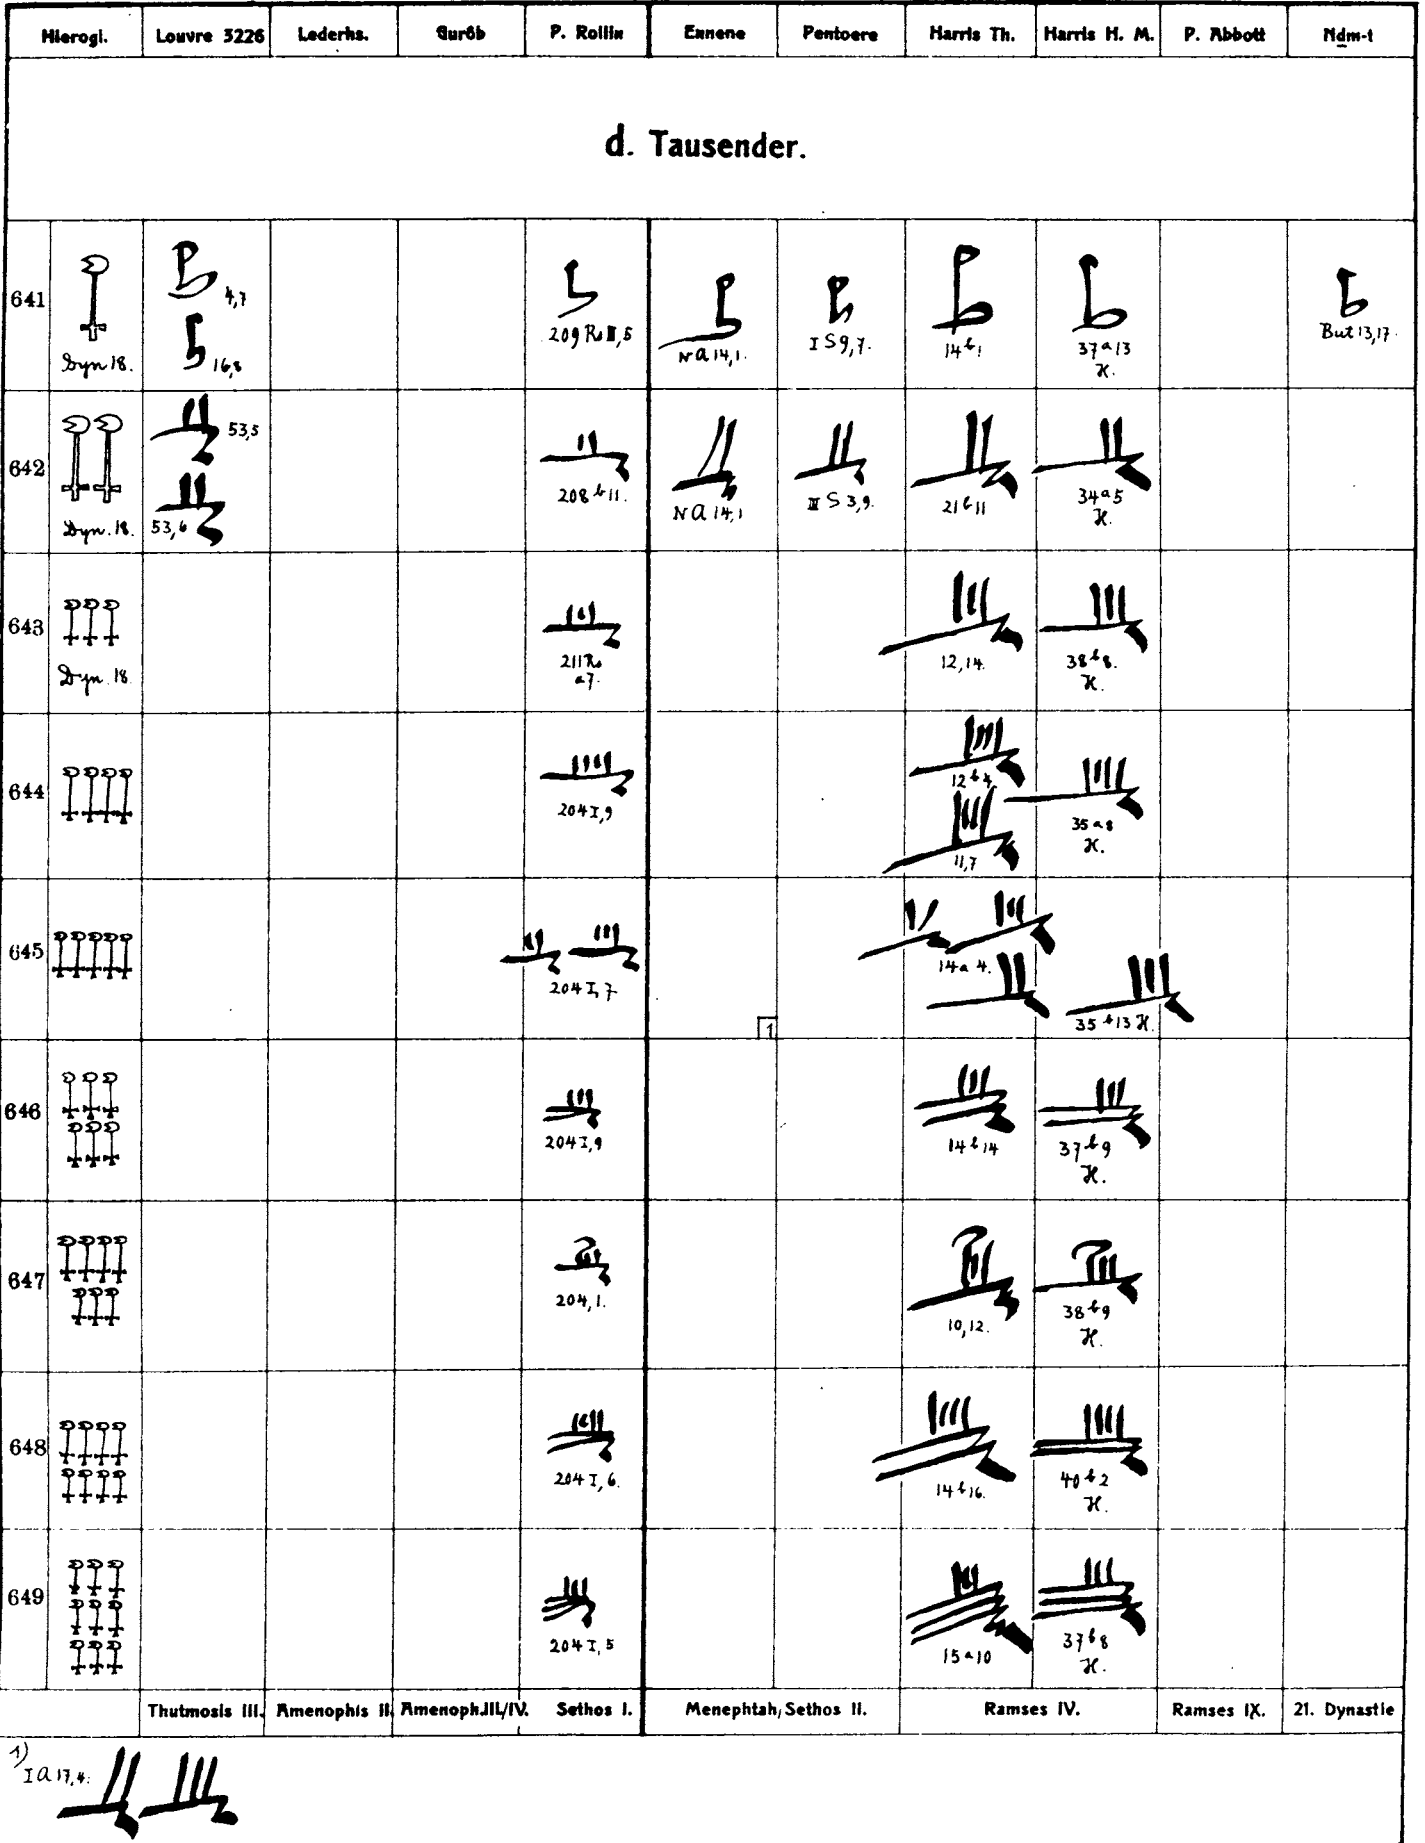 Hierogl. Louvre 3226 Lederhs. Gurôb P. Rollin Ennene Pentoere Harris Th. Harris H. M. P. Abbott Ndm-t
d. Tausender.
641 Dyn 18. 4,7 16,8 209 Ro II,5 NA 14,1. I S 9,7. 14 b 1 37 a 13 H. But 13,17.
642 Dyn. 18. 53,5 53,6 208 b 11. NA 14,1 III S 3,9. 21 b 11 34 a 5 H.
643 Dyn. 18 211 Ro a 7. 12,14. 38 b 8. H.
644 204 I,9 12 b 4 11,7 35 a 8 H.
645 204 I,7 1 14 a 4. 35 b 13 H.
646 204 I,9 14 b 14 37 b 9 H.
647 204,1. 10,12. 38 b 9 H.
648 204 I,6. 14 b 16. 40 b 2 H.
649 204 I,5 15 a 10 37 b 8 H.
Thutmosis III. Amenophis II. Amenoph.III/IV. Sethos I. Menephtah/Sethos II. Ramses IV. Ramses IX. 21. Dynastie
1) I a 17,4.